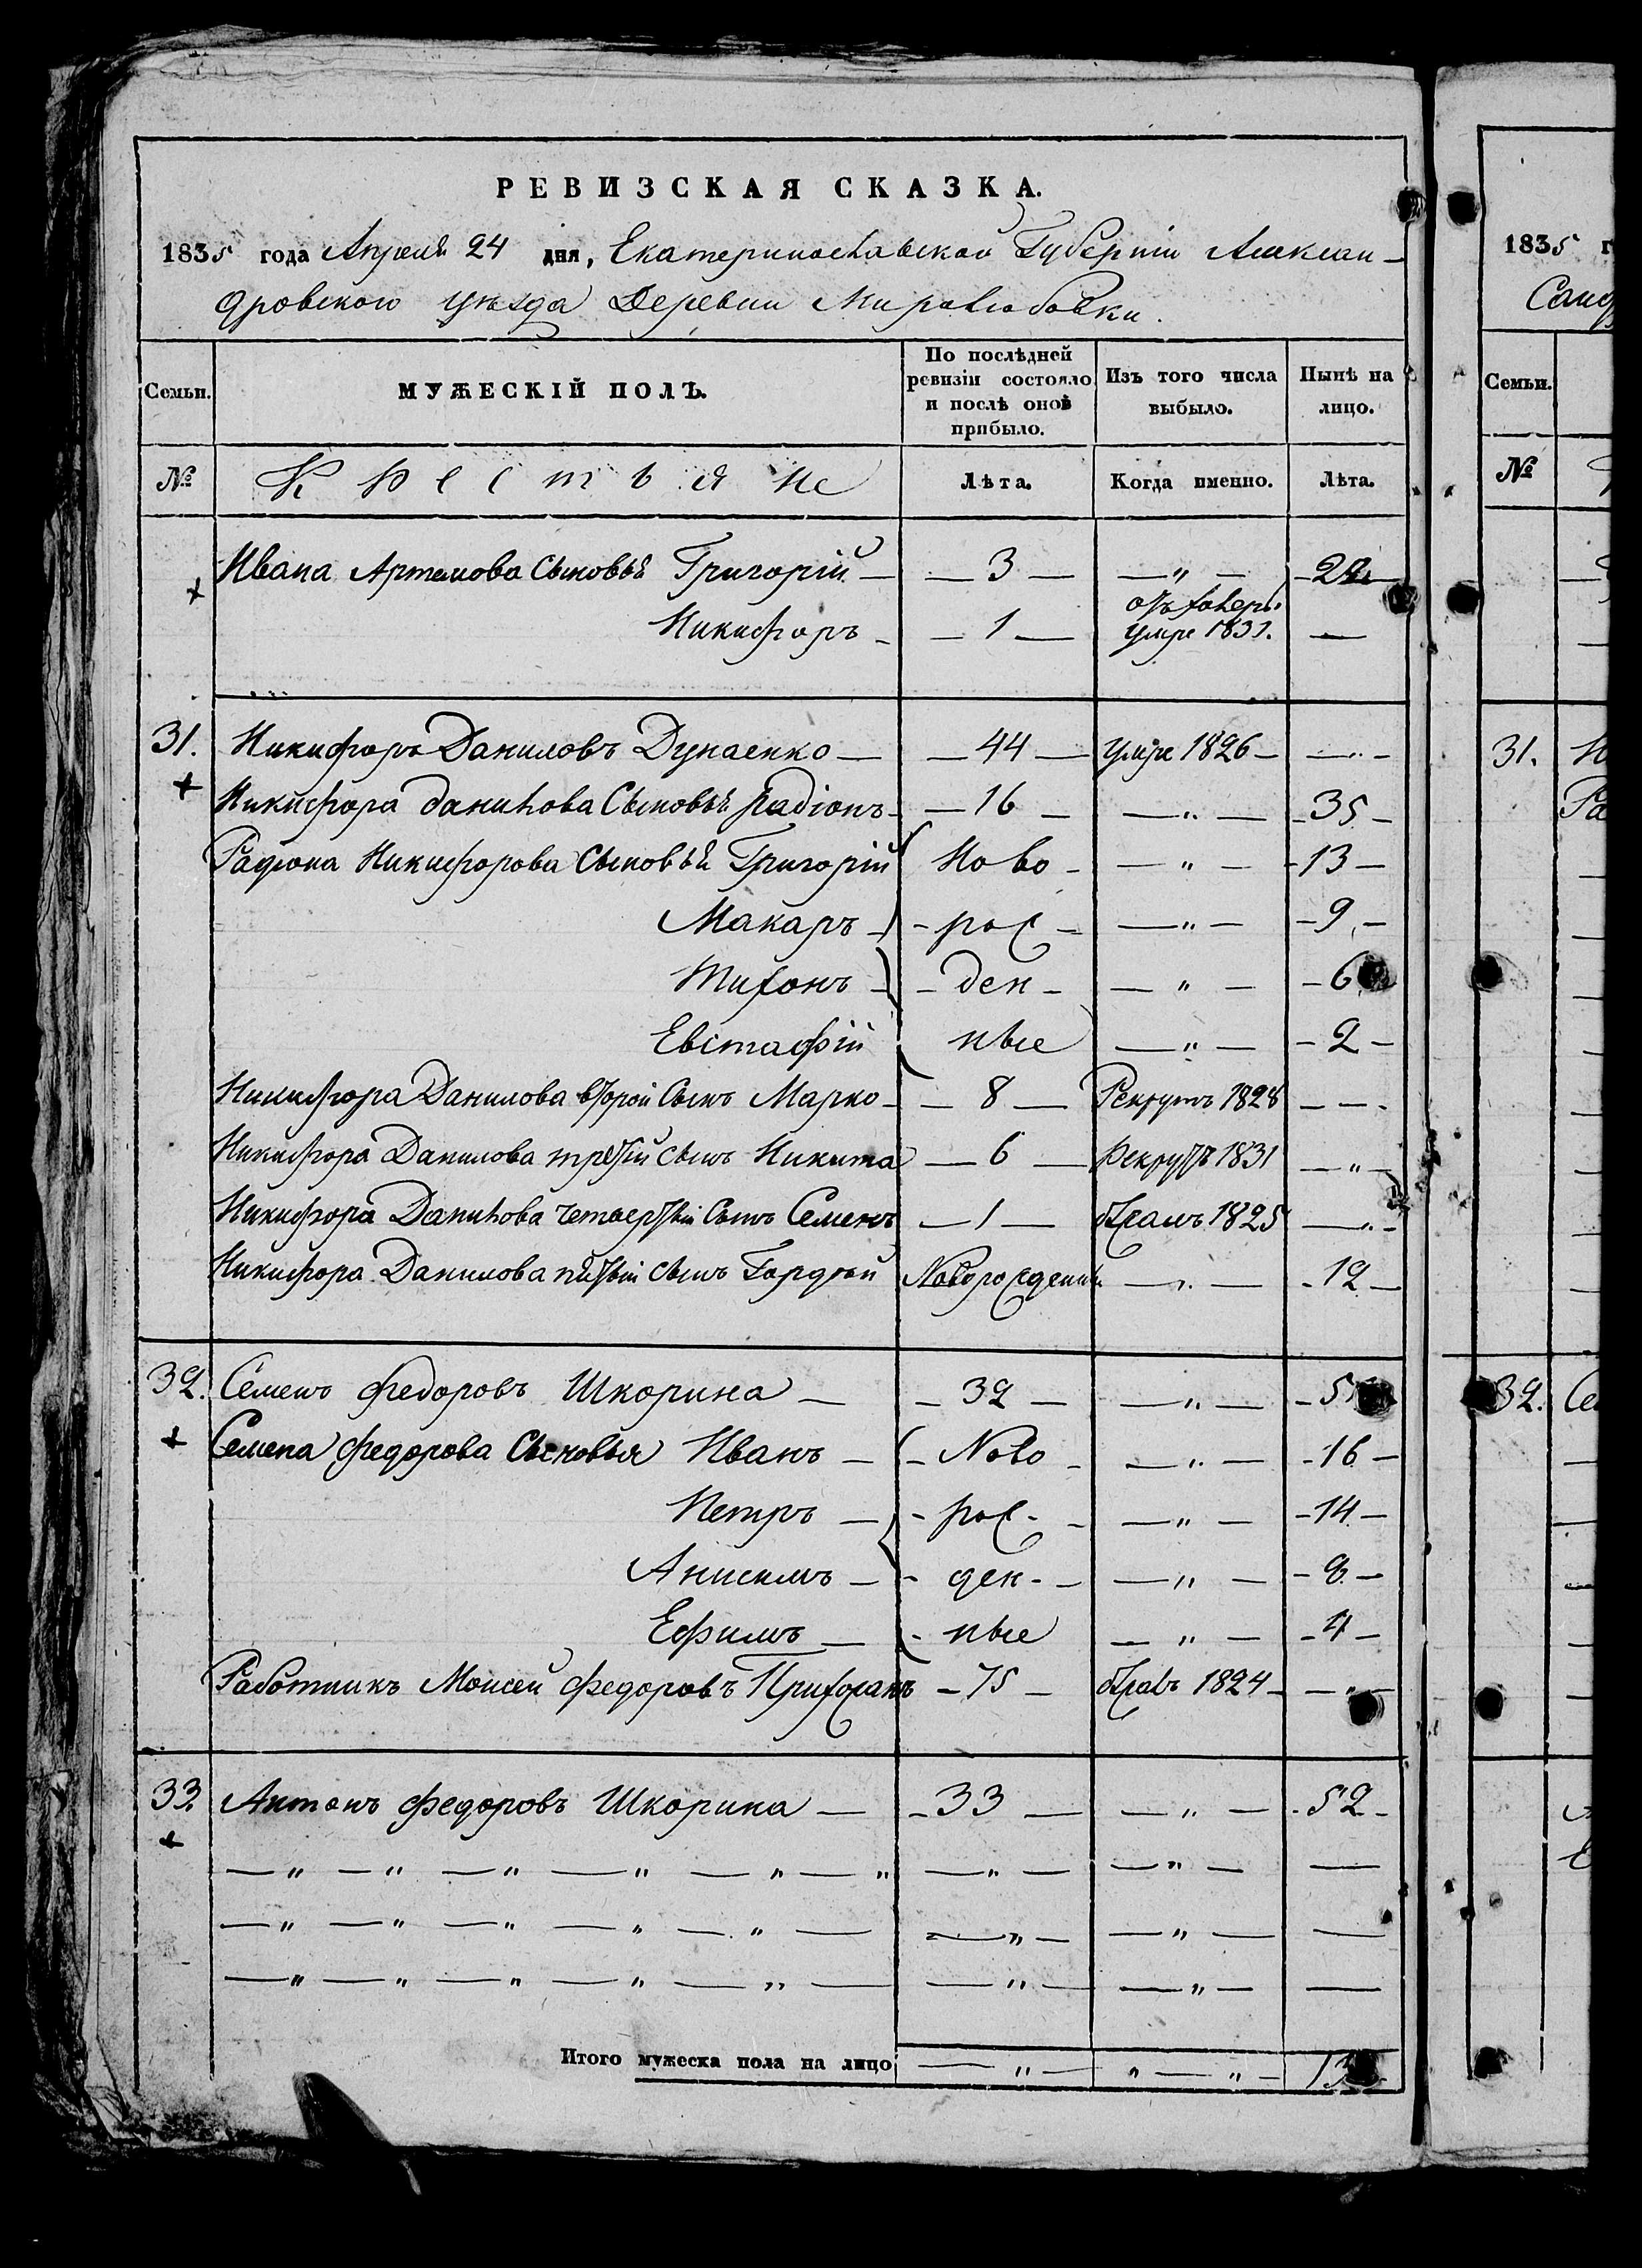 РЕВИЗСКАЯ СКАЗКА.
1835 года Апреля 24 дня, Екатеринославской Губерніи Алексан-
дровского уѣзда Деревни Миролюбовки.
Семьи. МУЖЕСКІЙ ПОЛЪ. По послѣдней ревизіи состояло и послѣ оной прибыло. Изъ того числа выбыло. Нынѣ на лицо.
№ Крестьяне Лѣта. Когда именно. Лѣта.
Ивана Артемова Сыновья Григорій — 3 — — „ —
Никифоръ — 1 — отъ холеры умре 1831. —
31. Никифоръ Даниловъ Дунаенко — 44 — умре 1826 — — „ —
Никифора Данилова Сыновья Радіонъ — 16 — — „ — 35 —
Радиона Никифорова Сыновья Григорій Ново — — „ — 13 —
Макаръ — рож — — „ — 9 —
Тихонъ — ден — — „ — 6
Евстафій ные — „ — 2 —
Никифора Данилова второй Сынъ Марко — 8 — Рекрутъ 1828 — —
Никифора Данилова третій сынъ Никита — 6 — Рекрутъ 1831 — „ —
Никифора Данилова четвертый Сынъ Семенъ — 1 — 1825 — „ —
Никифора Данилова пятый сынъ Гордѣй Новорожденый — „ — 12 —
32. Семенъ Федоровъ Шкорина — 32 — — „ —
Семена Федорова Сыновья Иванъ — Ново — — „ — 16 —
Петръ — рож — — „ — 14 —
Анисимъ — ден — — „ —
Ефимъ — ные — „ — 4 —
Работникъ Моисей Федоровъ — 75 — 1824 — — „ —
33. Антонъ Федоровъ Шкорина — 33 — — „ — 52 —
— „ — „ — „ — „ — „ — „ — „ — — „ — —
— „ — „ — „ — „ — „ — — „ — — „ — —
— „ — „ — „ — „ — „ — — „ — — „ — —
Итого мужеска пола на лицо — „ — „ — „ —
1835
31.
32.
Семьи.
№